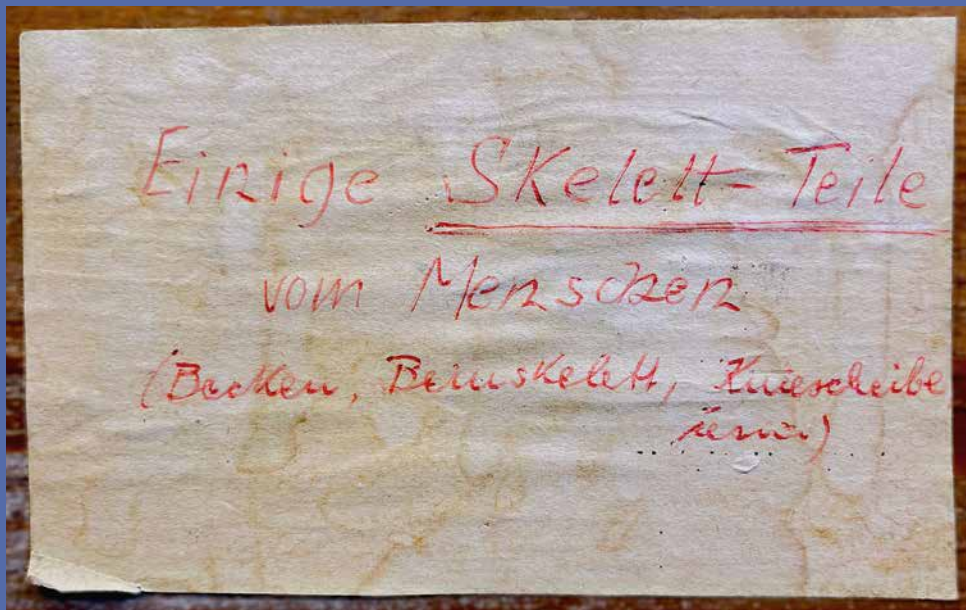 Einige Skelett-Teile
vom Menschen
(Becken, Beinskelett, Kniescheibe
usw.)